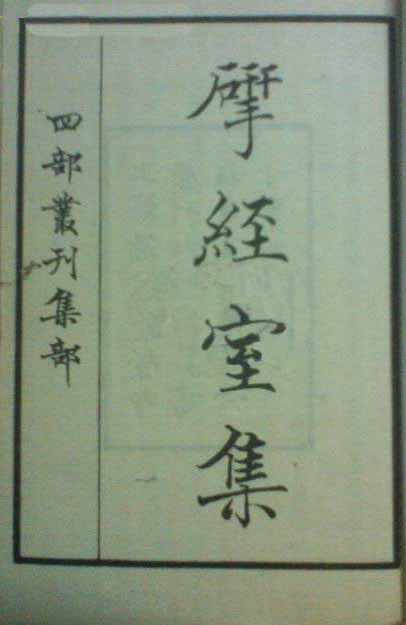 揅經室集
四部叢刊集部